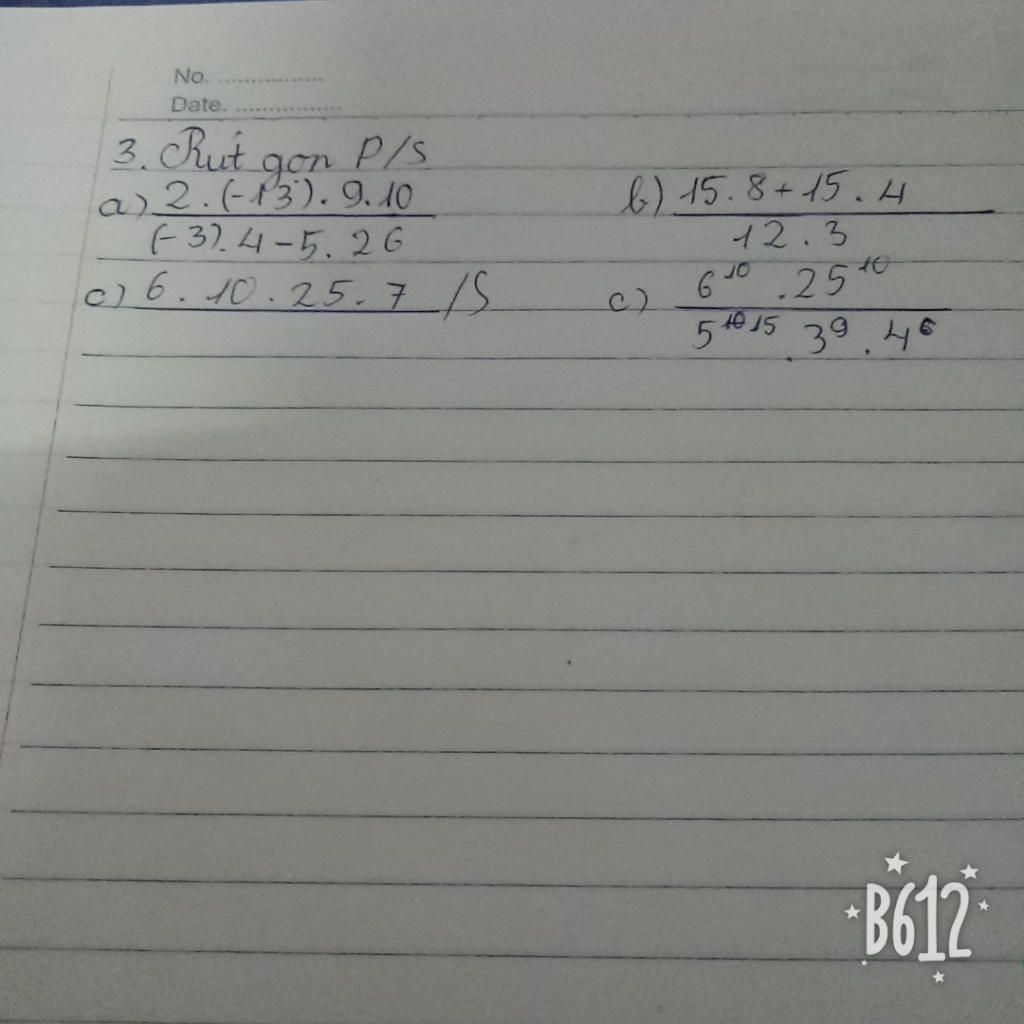 No. ................
Date. ................
3. Rút gọn P/S
a) 2.(-13).9.10
(-3).4-5.26
b) 15.8+15.4
12.3
c) 6.10.25.7 /S
c) 6^10.25^10
5^15.3^9.4^6
B612